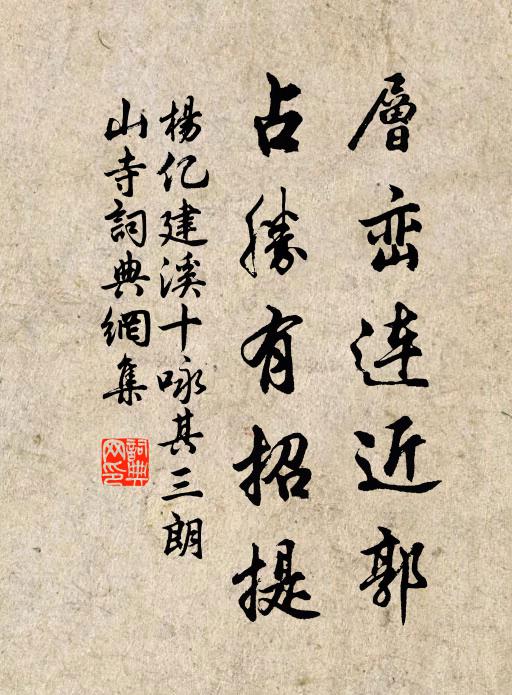 層峦连近郭
占勝有招提
楊亿建溪十咏其三朗
山寺詞典網集
詞典网印